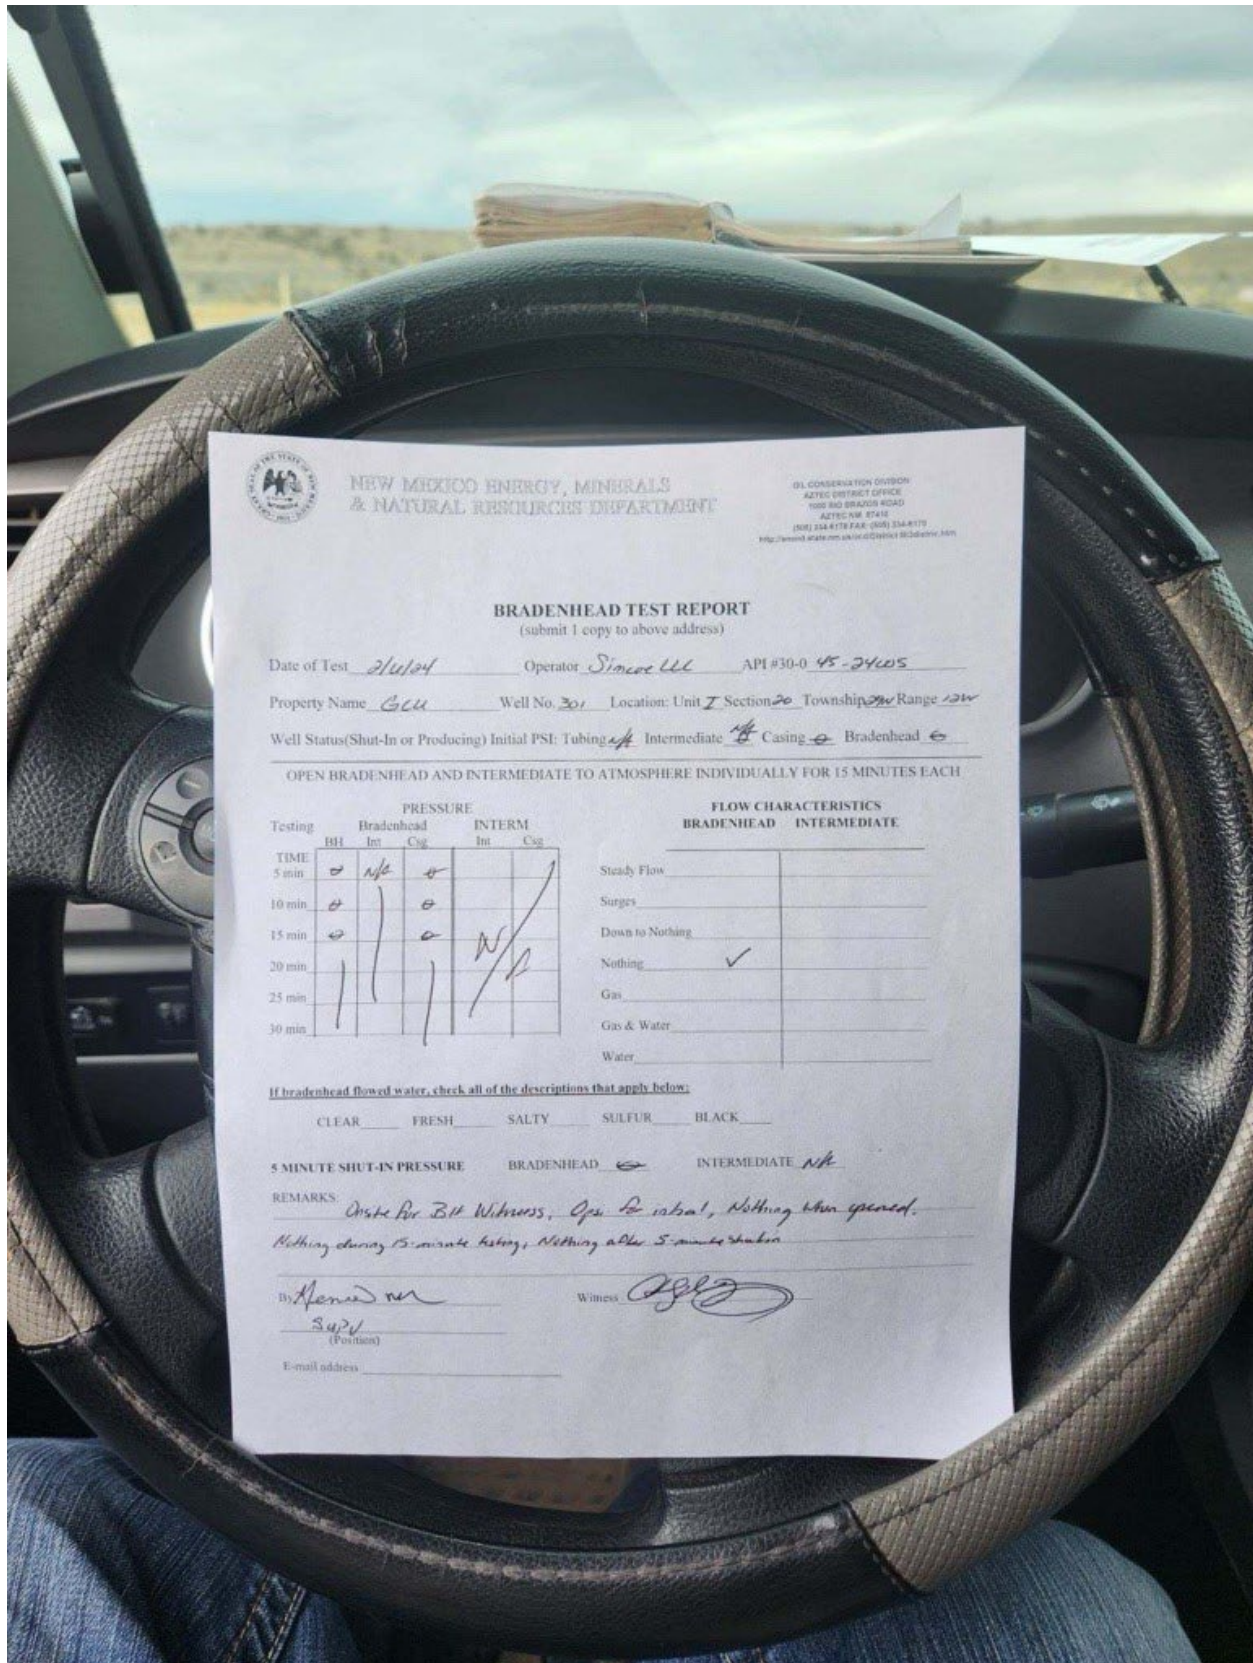 NEW MEXICO ENERGY, MINERALS
& NATURAL RESOURCES DEPARTMENT
OIL CONSERVATION DIVISION
AZTEC DISTRICT OFFICE
1000 RIO BRAZOS ROAD
AZTEC NM 87410
(505) 334-6178 FAX: (505) 334-6170
BRADENHEAD TEST REPORT
(submit 1 copy to above address)
Date of Test Operator Simcoe LLC API #30-0 45-
Property Name GCU Well No. 301 Location: Unit I Section 20 Township 29N Range 12W
Well Status(Shut-In or Producing) Initial PSI: Tubing N/A Intermediate N/A Casing 0 Bradenhead 0
OPEN BRADENHEAD AND INTERMEDIATE TO ATMOSPHERE INDIVIDUALLY FOR 15 MINUTES EACH
PRESSURE
FLOW CHARACTERISTICS
Testing Bradenhead INTERM
BRADENHEAD INTERMEDIATE
BH Int Csg Int Csg
TIME
5 min 0 N/A 0
10 min 0 0
15 min 0 0 N/A
20 min
25 min
30 min
Steady Flow
Surges
Down to Nothing
Nothing ✓
Gas
Gas & Water
Water
If bradenhead flowed water, check all of the descriptions that apply below:
CLEAR FRESH SALTY SULFUR BLACK
5 MINUTE SHUT-IN PRESSURE BRADENHEAD 0 INTERMEDIATE N/A
REMARKS: Onsite for BH Witness, 0psi for initial, Nothing when opened.
Nothing during 15-minute testing, Nothing after 5-minute shutin
By Witness
Supv
(Position)
E-mail address